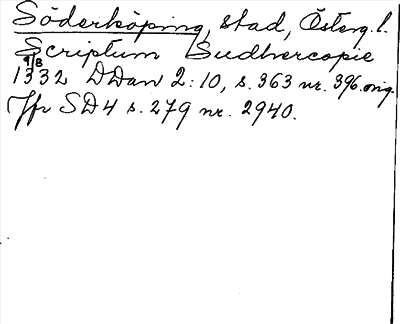 Söderköping, stad, Österg.l.
Scriptum Sudhercopie
9/8
1332 DDan 2:10, s. 363 nr. 396. orig.
Jfr SD 4 s. 279 nr. 2940.